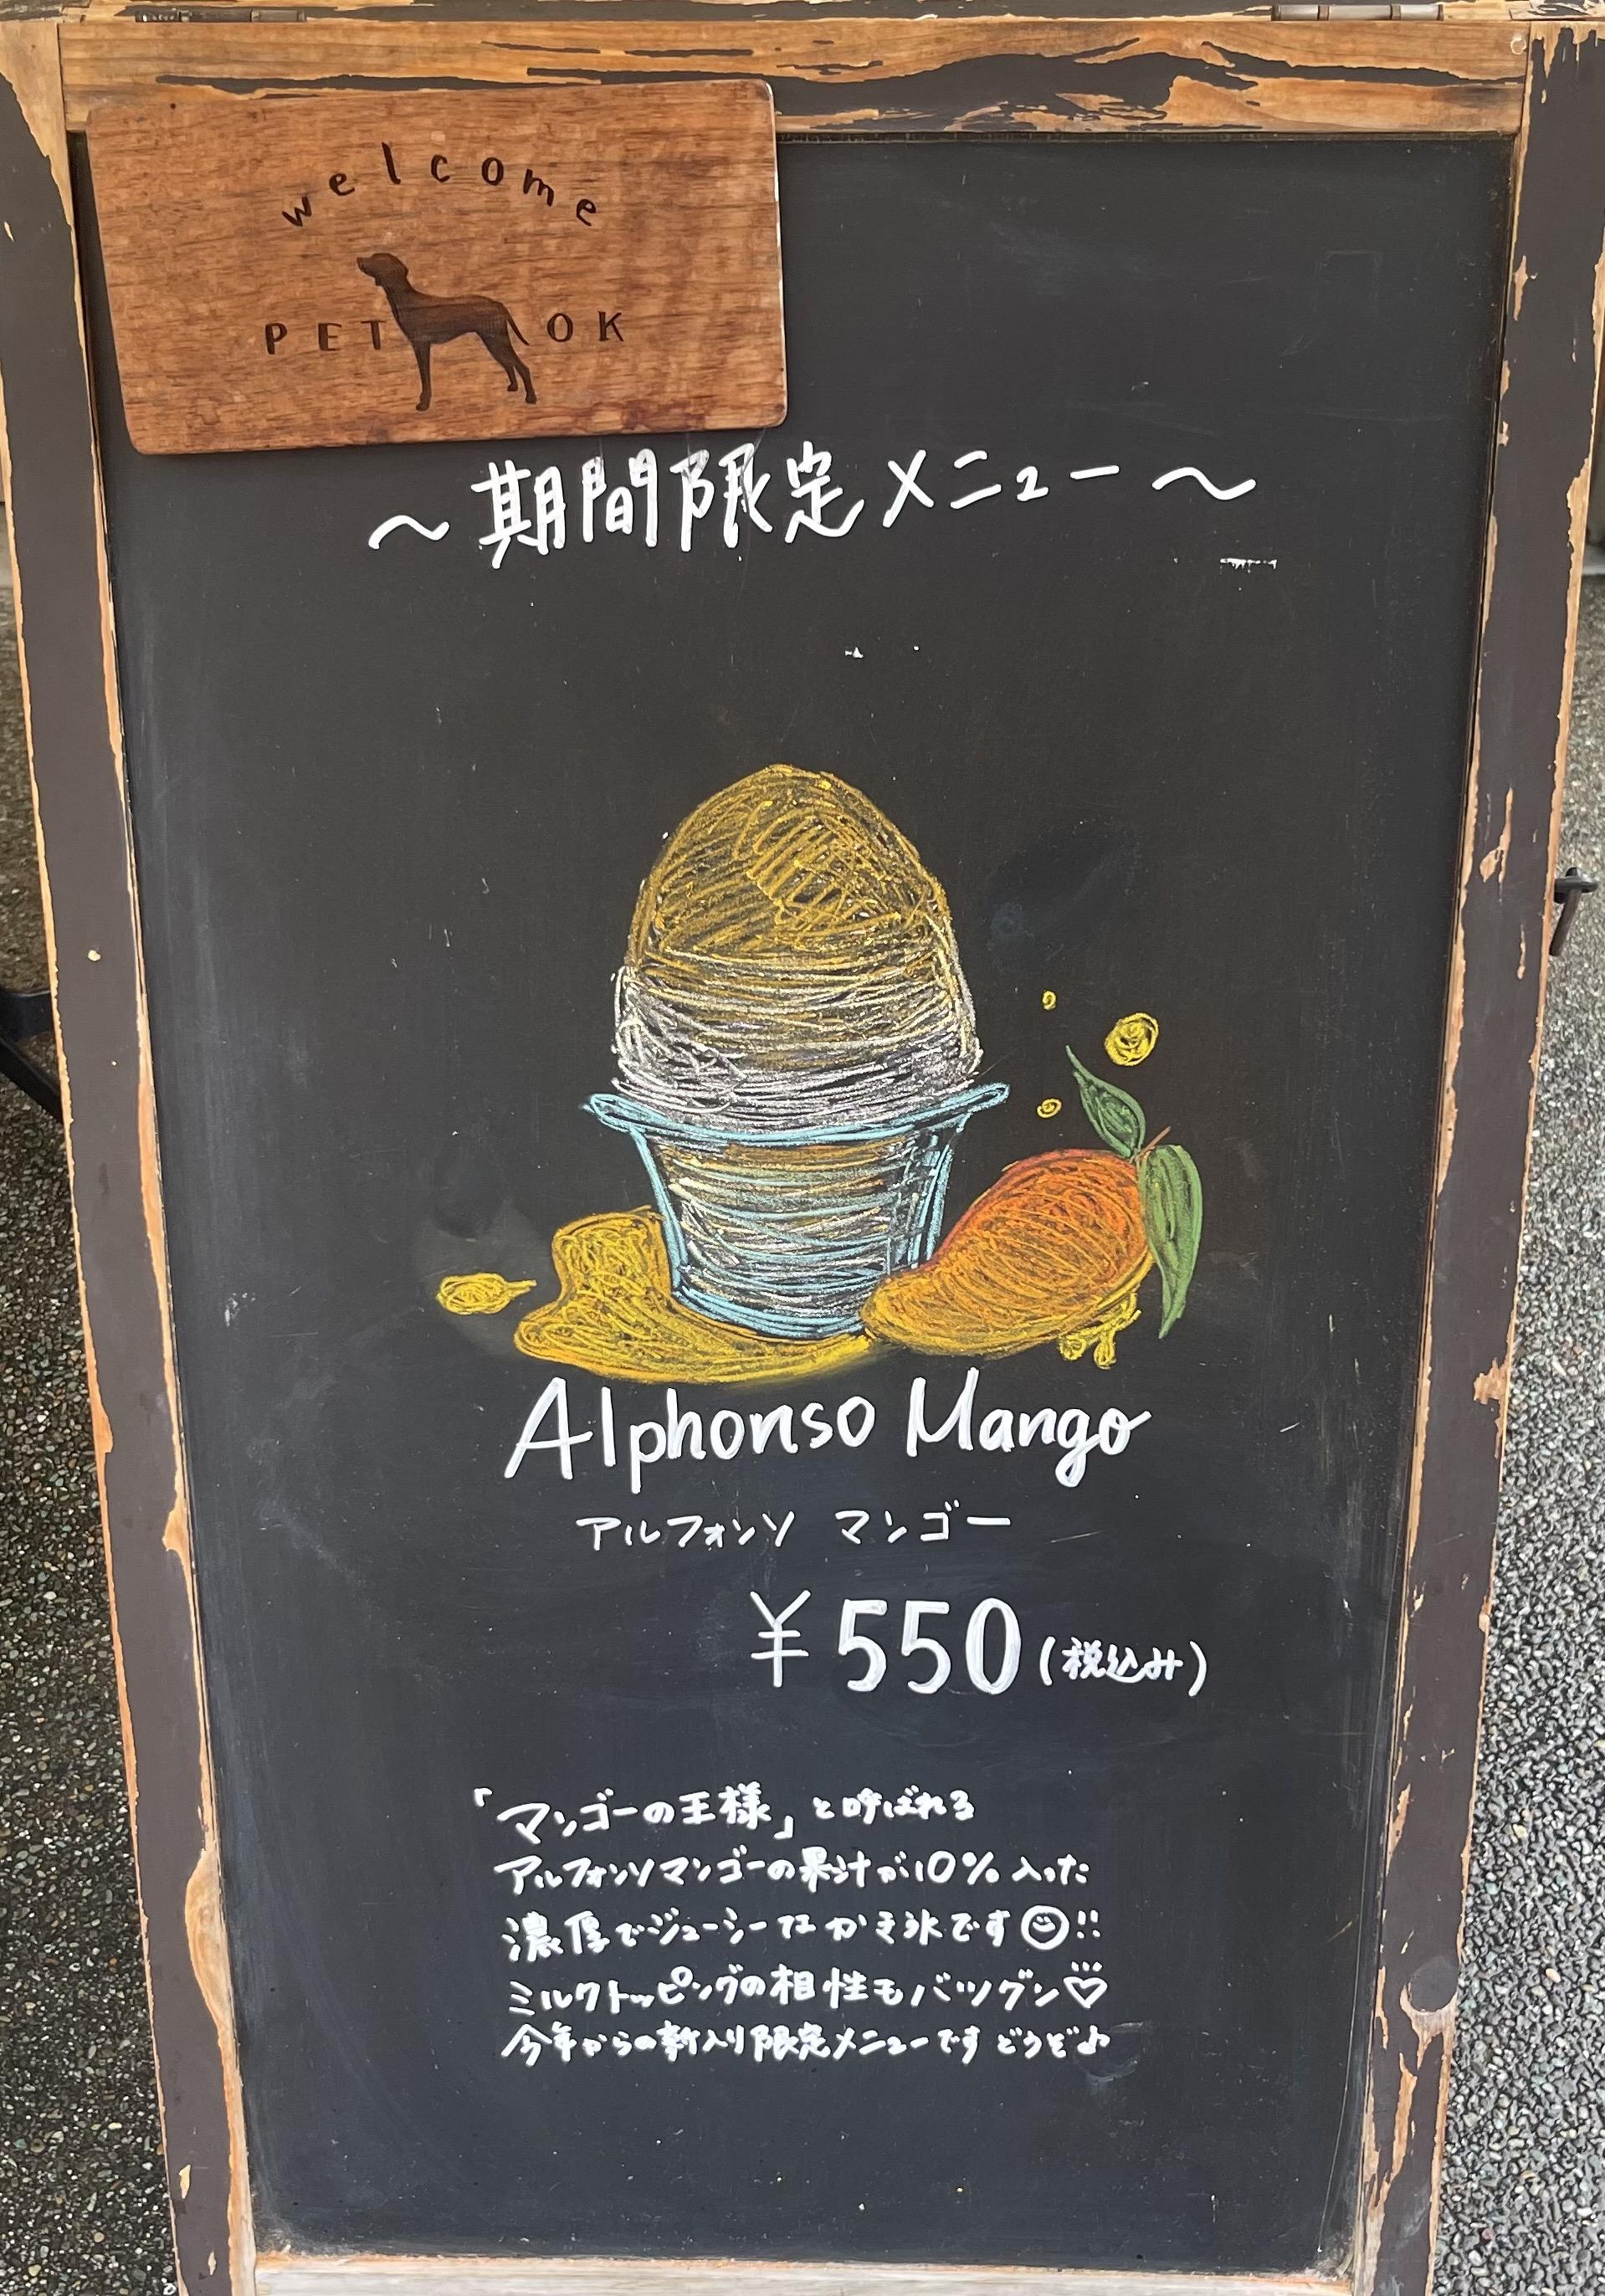 welcome
PET OK
～期間限定メニュー～
Alphonso Mango
アルフォンソ マンゴー
¥550(税込み)
「マンゴーの王様」と呼ばれる
アルフォンソマンゴーの果汁が10%入った
濃厚でジューシーなかき氷です☺!!
ミルクトッピングの相性もバツグン♡
今年からの新入り限定メニューです どうぞ♪